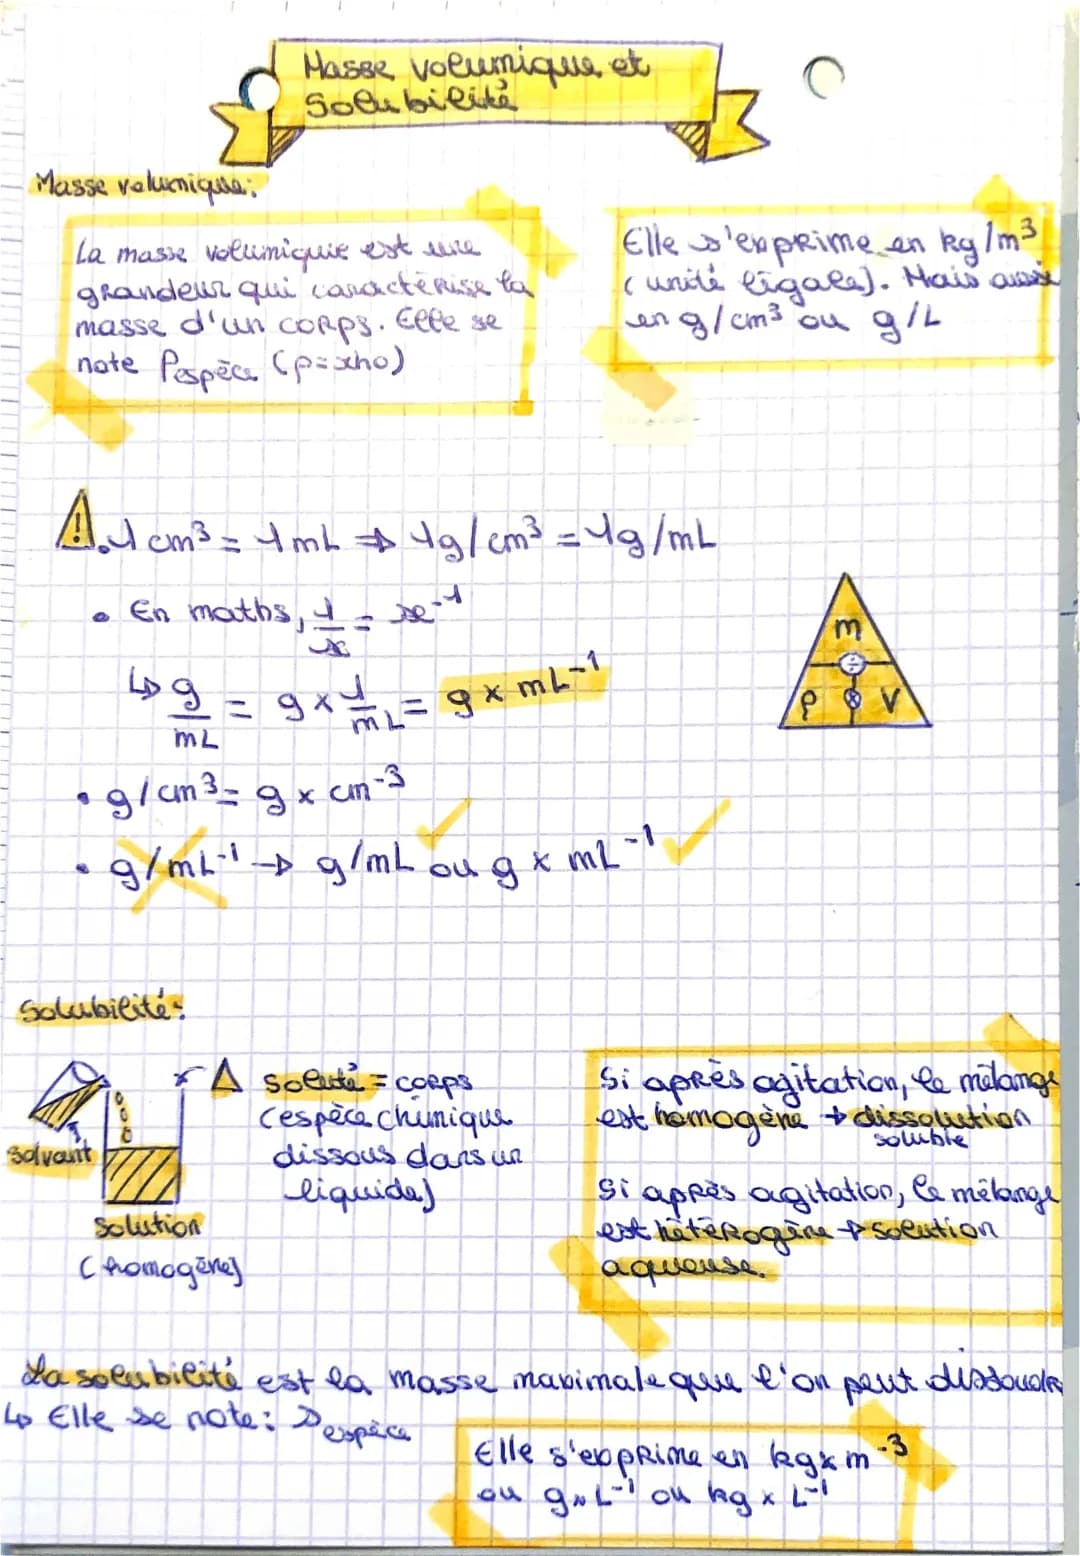 Masse volumique et
Solubilité
Masse volumique:
La masse volumique est une
grandeur qui caractérise la
masse d'un corps. Elle se
note ρespèce (ρ=rho)
Elle s'exprime en kg/m³
(unité légale). Mais aussi
en g/cm³ ou g/L
! • 1 cm³ = 1 mL ⇒ 1g/cm³ = 1g/mL
• En maths, 1/x = x⁻¹
↳ g/mL = g × 1/mL = g × mL⁻¹
m
÷
ρ ⊗ V
• g/cm³ = g × cm⁻³
• g/mL⁻¹ → g/mL ou g × mL⁻¹
Solubilité:
solvant
solution
(homogène)
soluté = corps
(espèce chimique
dissous dans un
liquide)
Si après agitation, le mélange
est homogène → dissolution
soluble
Si après agitation, le mélange
est hétérogène → solution
aqueuse.
La solubilité est la masse maximale que l'on peut dissoudre
↳ Elle se note: s espèce
Elle s'exprime en kg × m⁻³
ou g × L⁻¹ ou kg × L⁻¹